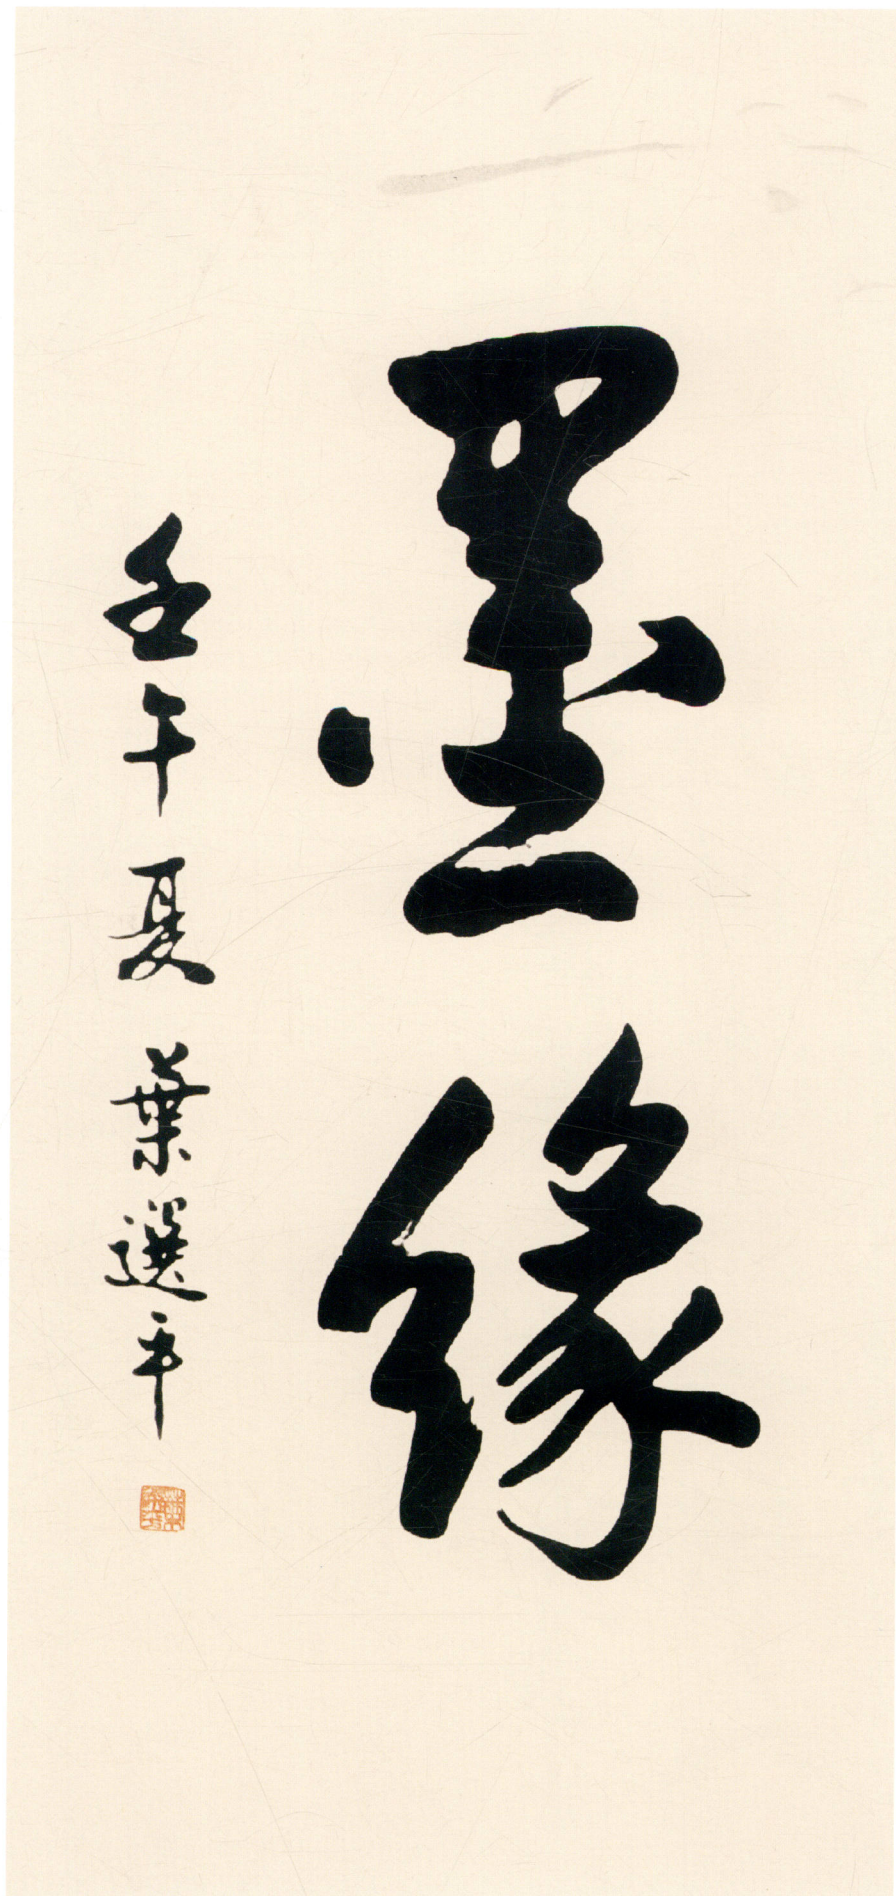 墨缘
壬午夏 葉選平